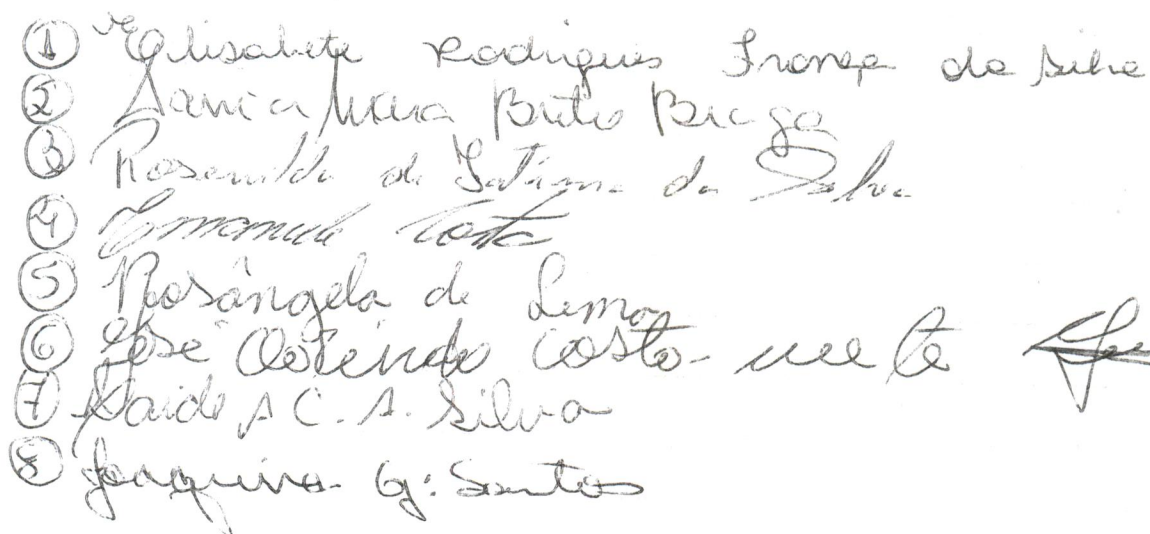 1 Elisabete Rodrigues França da Silva
2 Vania Mara Brito Braga
3 Rosenilda de Fátima da Silva
4 Emanuele Costa
5 Rosângela de Lema
6 José Costa
7 A C. A. Silva
8 Joaquina G: Santos